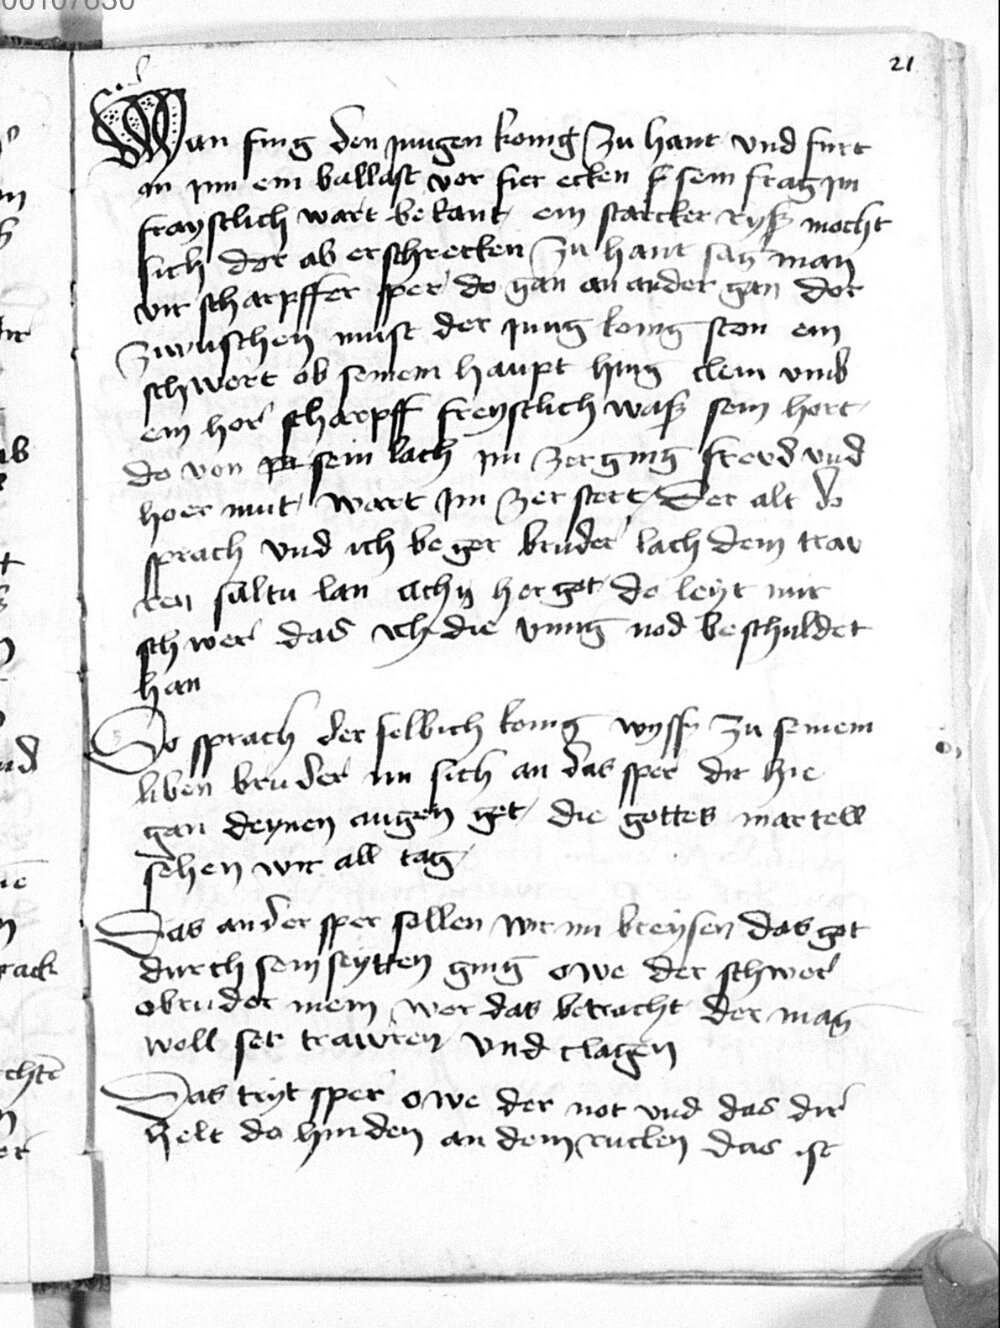 00107630
21
Man fing den jungen konig zu hant und furt
in jnn ein ballast vor fier ecken sein frag jm
frayschlich wart bekant ein starcker ryß mocht
sich dor ab erschrecken zu hant sag man
vir scharpffer sper do gan an ander gan dor
zwuschen must der jung konig ston ein
schwert ob seinem haupt hing clein vnd
ein hor scharpff freyschlich waß sein hort
do von sein lach im zerging freud vnd
hoer mut wart jm zerstert Der alt do
sprach vnd ich beger bruder lach dein traw
ren saltu lan Achy her got do leyt mir
schwer das ich die vnnig nod beschuldet
han
Do sprach der selbich konig wyssy zu seinem
liben bruder nu sich an das sper dir hie
gan deynen augen get die gottes martell
sehen wir all tag
Das ander sper sollen wir nu breysen das got
durch sein seytten ging owe der schwer
o bruder mein wer das betracht der mag
woll ser trawren vnd clagen
Das tryt sper owe der not vnd das dir
helt do hinden an dem rucken das ist